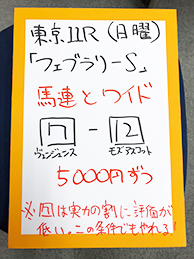 東京11R(日曜)
「フェブラリーS」
馬連とワイド
7 - 12
ヴェンジェンス モズアスコット
5000円ずつ
※7は実力の割に評価が
低い。この条件でもやれる!